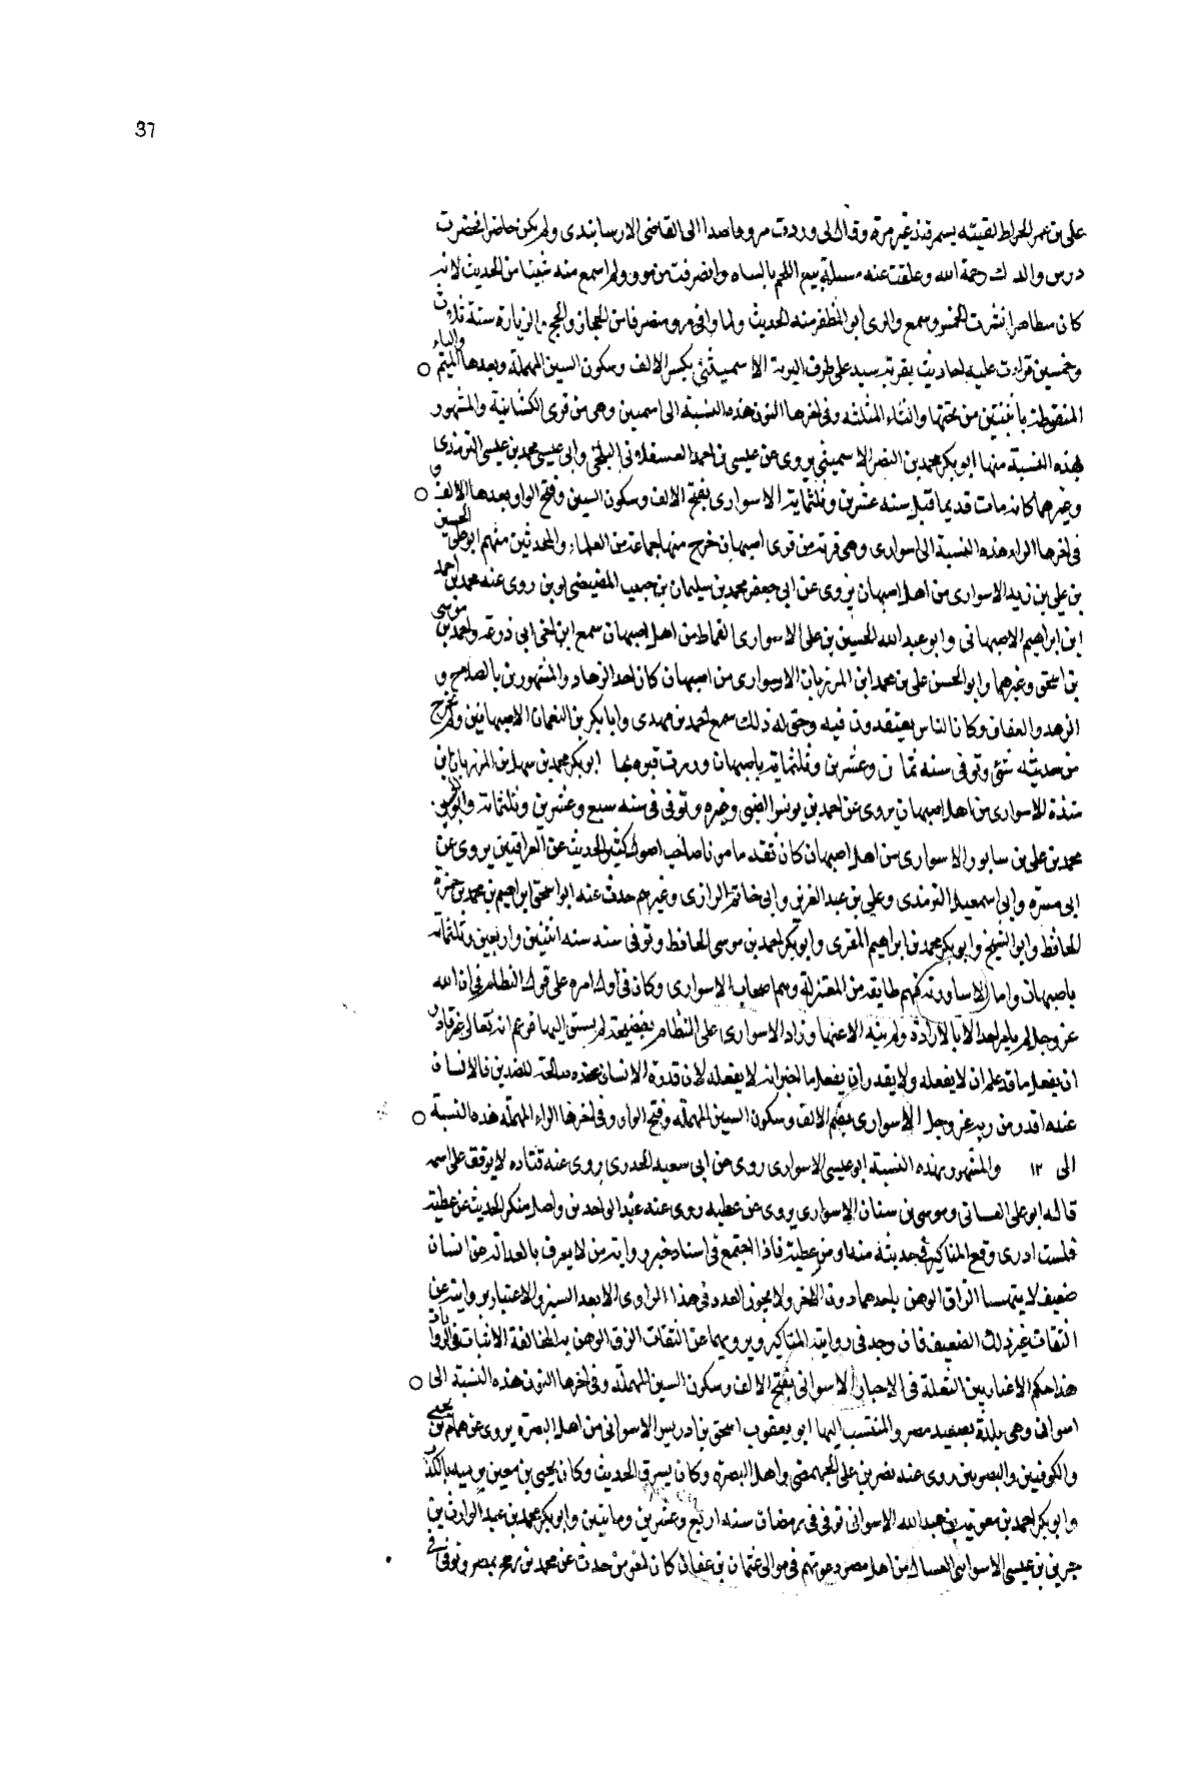 37
على بن عمر الخراط لقيته بسمرقند غير مرة وقال لى وردت مرو قاصدا الى القاضى الارسابندى ولم يكن حاضرا فحضرت
درس والدك رحمة الله وعلقت عنه مسئلة بيع اللحم بالساه وانصرفت من مرو ولم اسمع منه شيئا من الحديث لانه
كان سطاهرا نشرت الخشو وسمع والدى ابو المظفر منه الحديث ولما وافى مرو منصرفا من الحجاز والحج والزيارة سنة ثلاث
وخمسين قرات عليه احاديث بقرية سيد على طرف البرية الاسميثنى بكسر الالف وسكون السين المهملة وبعدها الميم والياء
المنقوطة باثنتين من تحتها والثاء المثلثه وفى اخرها النون هذه النسبة الى اسميثن وهى من قرى الكشانية والمشهور
بهذه النسبة منها ابو بكر محمد بن النضر الاسميثنى يروى عن عيسى بن احمد العسقلانى البلخى وابى عيسى محمد بن عيسى الترمذى
وغيرهما كانه مات قديما قبل سنه عشرين وثلثماية الاسوارى بفتح الالف وسكون السين وفتح الواو بعدها الالف و
فى اخرها الراء هذه النسبة الى اسوارى وهى قرية من قرى اصبهان خرج منها جماعة من العلماء والمحدثين منهم ابو على الحسين
بن على بن زيد الاسوارى من اهل اصبهان يروى عن ابى جعفر محمد بن سليمان بن حبيب المصيصى لوين روى عنه محمد بن احمد
ابن ابراهيم الاصبهانى وابو عبد الله الحسين بن على الاسوارى القماط من اهل اصبهان سمع ابن اخى ابى زرعة واحمد بن موسى
بن اسحق وغيرهما وابو الحسن على بن محمد ابن المرزبان الاسوارى من اصبهان كان احد الزهاد والمشهورين بالصلاح و
الزهد والعفاف وكان الناس يعتقدون فيه وحق له ذلك سمع احمد بن مهدى وابا بكر بن النعمان الاصبهانيين ولم يخرج
من حديثه شئ وتوفى سنه ثمان وعشرين وثلثماية باصبهان وزرت قبره بها ابو بكر محمد بن سهل بن المرزبان بن
منده الاسوارى من اهل اصبهان يروى عن احمد بن يونس الضبى وغيره وتوفى فى سنه سبع وعشرين وثلثماية وابو الحسين
محمد بن على بن سابور الاسوارى من اهل اصبهان كان ثقه مامونا صاحب اصول كثير الحديث عن العراقيين يروى عن
ابى مسرة وابى اسمعيل الترمذى وعلى بن عبد العزيز وابى حاتم الرازى وغيرهم حدث عنه ابو اسحق ابراهيم بن محمد بن حمزة
الحافظ وابو الشيخ وابو بكر محمد بن ابراهيم المقرى وابو بكر احمد بن موسى الحافظ وتوفى سنه سنه اثنتين واربعين وثلثماية
باصبهان واما الاساورية فهم طايفه من المعتزلة وهم اصحاب الاسوارى وكان فى اول امره على قول النظام فى ان الله
عز وجل لم يامر احدا الا بالارادة ولم ينه الا عنها وزاد الاسوارى على النظام بفضيحة لم يسبق اليها فزعم انه تعالى غير قادر
ان يفعل ما قد علم ان لا يفعله ولا يقدر ان يفعل ما اخبر انه لا يفعله لان قدرة الانسان عنده صالحة للضدين فالانسان
عنده اقدر من ربه عز وجل الاسوارى بضم الالف وسكون السين المهملة وفتح الواو وفى اخرها الراء المهملة هذه النسبة
الى ١٢ والمشهور بهذه النسبة ابو عيسى الاسوارى روى عن ابى سعيد الخدرى روى عنه قتاده لا يوقف على اسمه
قاله ابو على الغسانى وموسى بن سنان الاسوارى يروى عن عطيه روى عنه عبد الواحد بن واصل منكر الحديث عن عطية
فلست ادرى وقع المناكير فى حديثه منه او من عطية فاذا اجتمع فى اسناد خبر رواية من لا يعرف بالعدالة عن انسان
ضعيف لا يتهيا الزاق الوهن باحدهما دون الاخر ولا يجوز القدح فى هذا الراوى الا بعد السبر والاعتبار بروايته عن
الثقات غير ذلك الضعيف فان وجد فى روايته المناكير ويرويها عن الثقات الزق الوهن به لمخالفة الاثبات فى الروايات
هذا حكم الاعتبار بين النقلة فى الاخبار الاسوانى بفتح الالف وسكون السين المهملة وفى اخرها النون هذه النسبة الى
اسوان وهى بلدة بصعيد مصر والمنتسب اليها ابو يعقوب اسحق بن ادريس الاسوانى من اهل البصرة يروى عن همام بن يحيى
والكوفيين والبصريين روى عنه نصر بن على الجهضمى واهل البصره وكان يسرق الحديث وكان يحيى بن معين يرميه بالكذب
وابو بكر احمد بن معوية بن عبد الله الاسوانى توفى فى رمضان سنه اربع وعشرين ومايتين وابو بكر محمد بن عبد الوارث بن
جرير بن عيسى الاسوانى العسال من اهل مصر دعوتهم فى موالى عثمان بن عفان كان حدث عن محمد بن رمح بمصر وتوفى فى